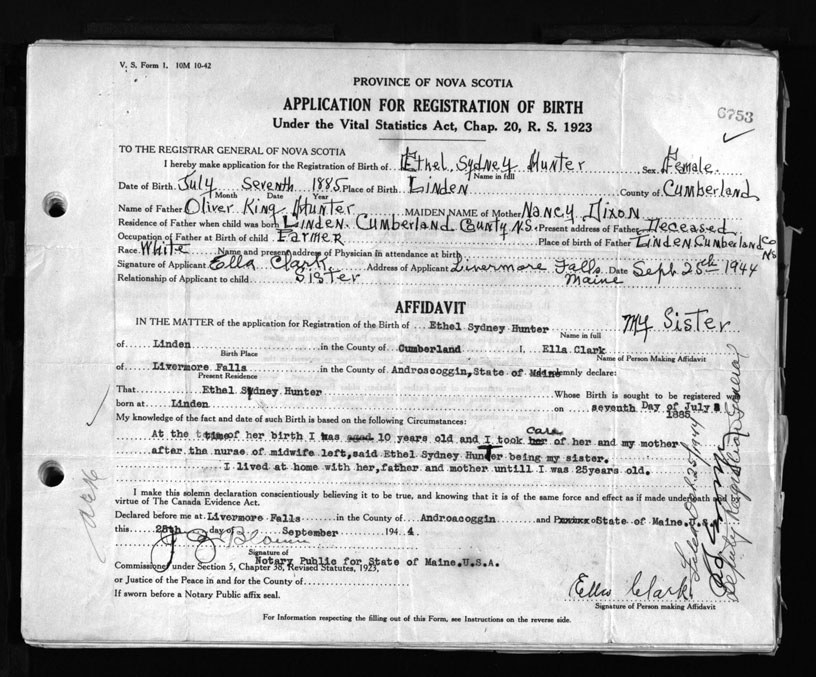 V. S. Form 1. 10M 10-42
PROVINCE OF NOVA SCOTIA
APPLICATION FOR REGISTRATION OF BIRTH
6753
Under the Vital Statistics Act, Chap. 20, R. S. 1923
TO THE REGISTRAR GENERAL OF NOVA SCOTIA
I hereby make application for the Registration of Birth of Ethel Sydney Hunter Sex Female
Name in full
Date of Birth July Seventh 1885 Place of Birth Linden County of Cumberland
Month Date Year
Name of Father Oliver King Hunter MAIDEN NAME of Mother Nancy Dixon
Residence of Father when child was born Linden Cumberland County N.S. Present address of Father Deceased
Occupation of Father at Birth of child Farmer Place of birth of Father Linden Cumberland Co N.S
Race White Name and present address of Physician in attendance at birth
Signature of Applicant Ella Clark Address of Applicant Livermore Falls Maine Date Sept 25th 1944
Relationship of Applicant to child Sister
AFFIDAVIT
IN THE MATTER of the application for Registration of the Birth of Ethel Sydney Hunter My Sister
Name in full
of Linden in the County of Cumberland I, Ella Clark
Birth Place Name of Person Making Affidavit
of Livermore Falls in the County of Androscoggin, State of Maine solemnly declare:
Present Residence
That Ethel Sydney Hunter Whose Birth is sought to be registered was
born at Linden on seventh Day of July 1885
My knowledge of the fact and date of such Birth is based on the following Circumstances:
At the time of her birth I was aged 10 years old and I took care of her and my mother
after the nurse of midwife left, said Ethel Sydney Hunter being my sister.
I lived at home with her, father and mother untill I was 25years old.
I make this solemn declaration conscientiously believing it to be true, and knowing that it is of the same force and effect as if made under oath and by
virtue of The Canada Evidence Act.
Declared before me at Livermore Falls in the County of Androacoggin and State of Maine.U.S.A
this 25th day of September 1944.
Signature of
Notary Public for State of Maine.U.S.A.
Commissioned under Section 5, Chapter 38, Revised Statutes, 1923,
or Justice of the Peace in and for the County of
If sworn before a Notary Public affix seal.
Ella Clark
Signature of Person making Affidavit
For Information respecting the filling out of this Form, see Instructions on the reverse side.
Deputy Registrar General